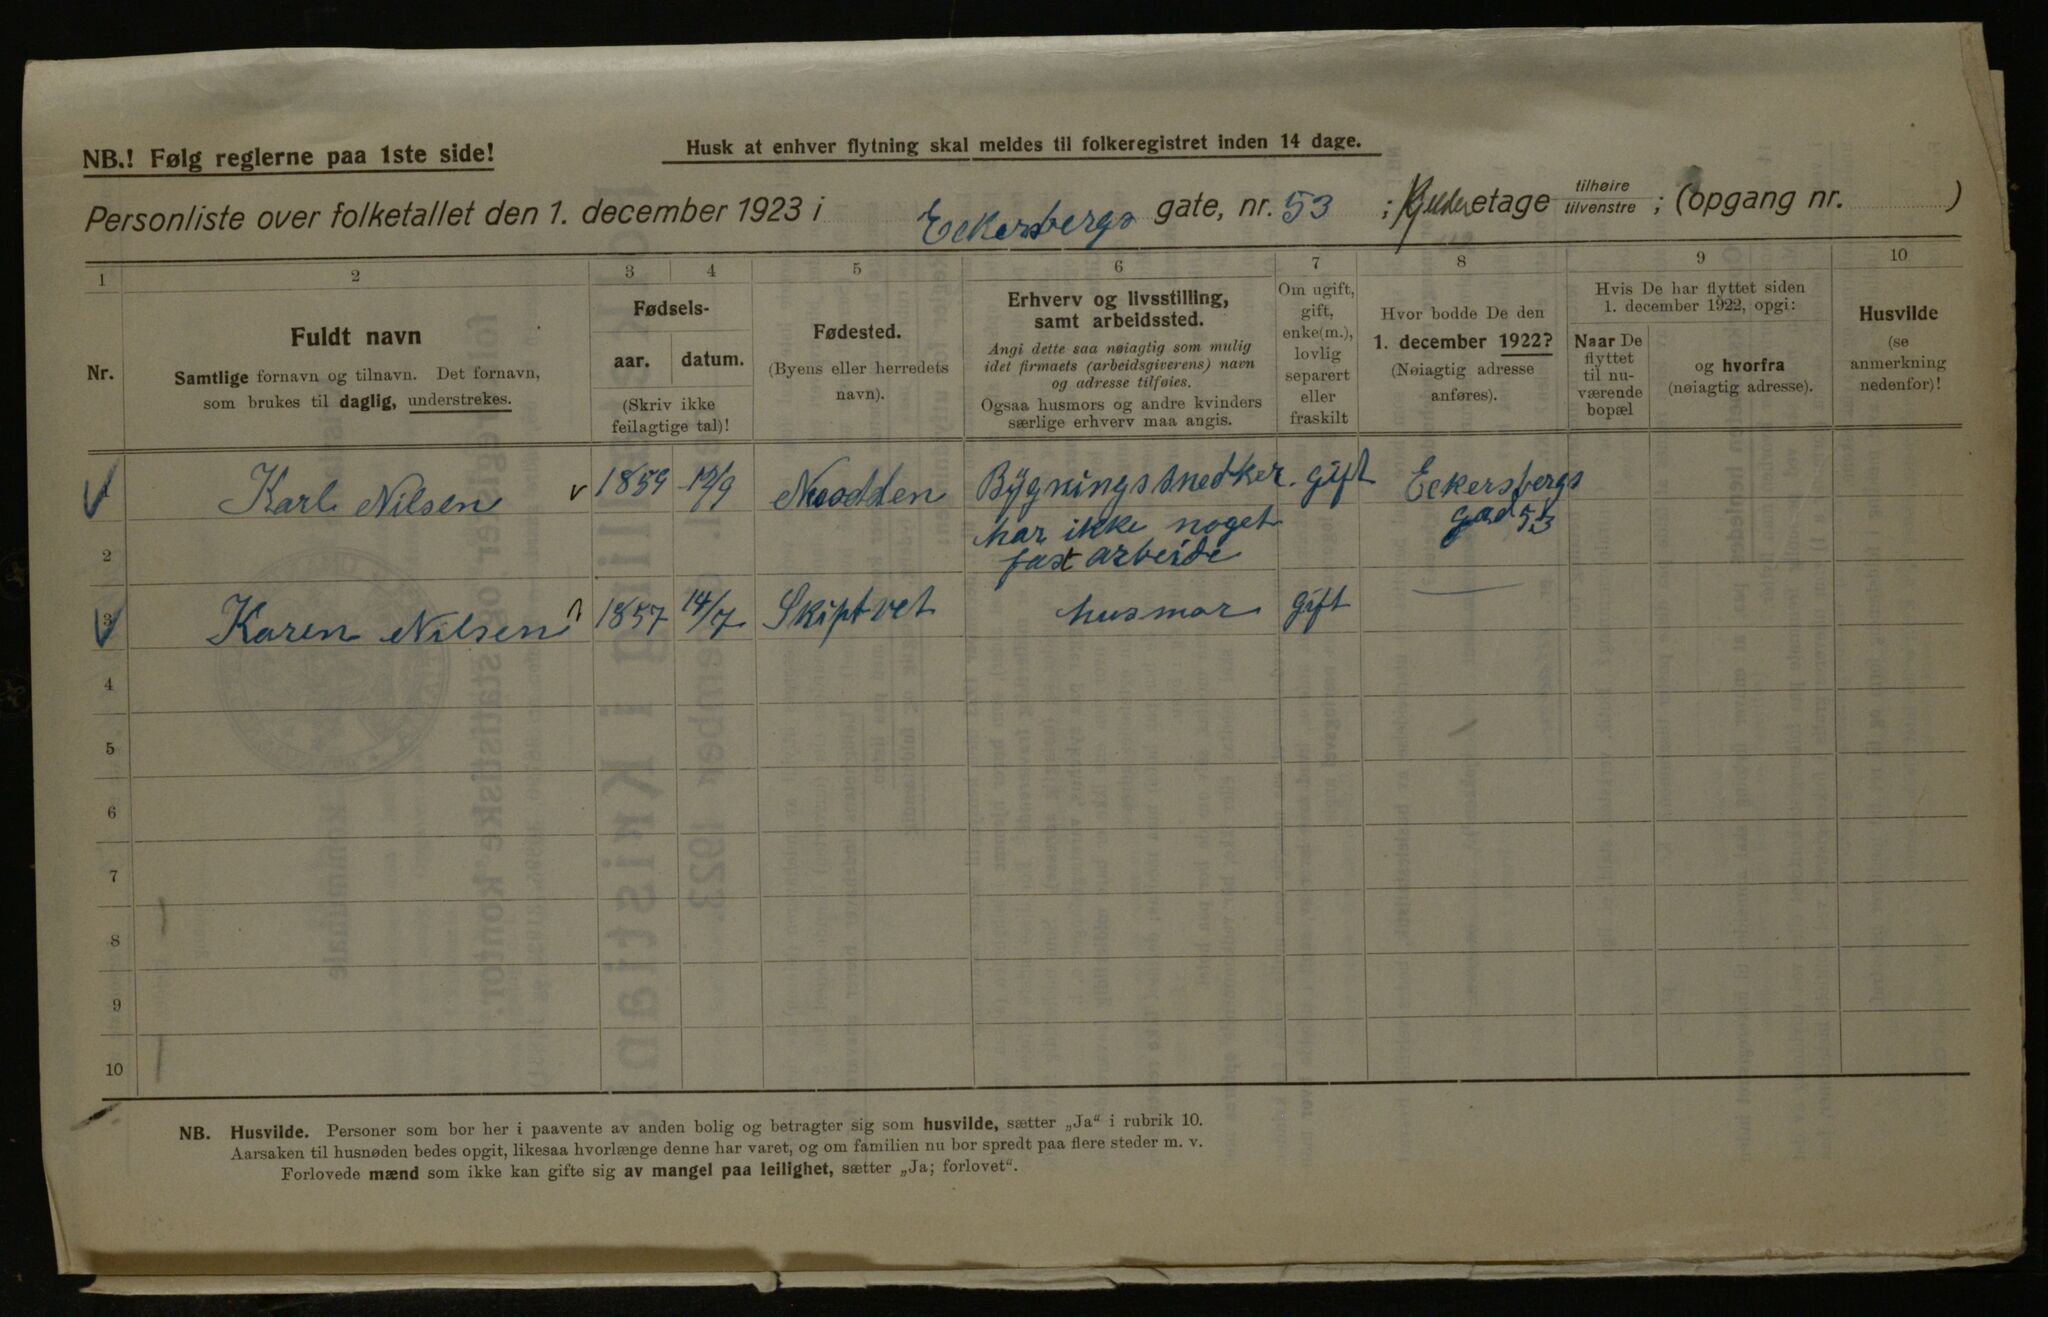 NB.! Følg reglerne paa 1ste side!
Husk at enhver flytning skal meldes til folkeregistret inden 14 dage.
Personliste over folketallet den 1. december 1923 i Eckersbergs gate, nr. 53 ; Kjelder etage tilhøire tilvenstre ; (opgang nr. )
1 2 3 4 5 6 7 8 9 10
Nr.
Fuldt navn
Samtlige fornavn og tilnavn. Det fornavn,
som brukes til daglig, understrekes.
Fødsels-
aar. datum.
(Skriv ikke
feilagtige tal)!
Fødested.
(Byens eller herredets
navn).
Erhverv og livsstilling,
samt arbeidssted.
Angi dette saa nøiagtig som mulig
idet firmaets (arbeidsgiverens) navn
og adresse tilføies.
Ogsaa husmors og andre kvinders
særlige erhverv maa angis.
Om ugift,
gift,
enke(m.),
lovlig
separert
eller
fraskilt
Hvor bodde De den
1. december 1922?
(Nøiagtig adresse
anføres).
Hvis De har flyttet siden
1. december 1922, opgi:
Naar De
flyttet
til nu-
værende
bopæl
og hvorfra
(nøiagtig adresse).
Husvilde
(se
anmerkning
nedenfor)!
Karl Nilsen 1859 Nesodden Bygningssnedker. gift Eckersbergs
gad 53
2 har ikke noget
fast arbeide
3 Karen Nilsen 1857 14/7 Skiptvet husmor gift
4
5
6
7
8
9
10
NB. Husvilde. Personer som bor her i paavente av anden bolig og betragter sig som husvilde, sætter „Ja“ i rubrik 10.
Aarsaken til husnøden bedes opgit, likesaa hvorlænge denne har varet, og om familien nu bor spredt paa flere steder m. v.
Forlovede mænd som ikke kan gifte sig av mangel paa leilighet, sætter „Ja; forlovet“.